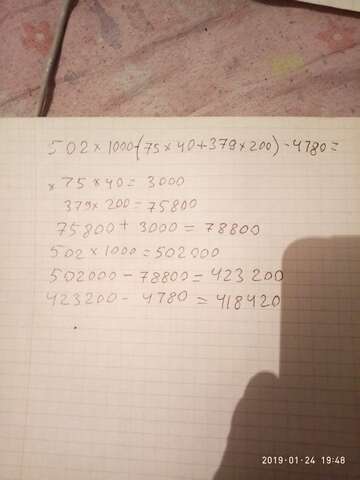 502 × 1000-(75 × 40 + 379 × 200) - 4780 =
× 75 × 40 = 3000
379 × 200 = 75800
75800 + 3000 = 78800
502 × 1000 = 502000
502000 - 78800 = 423200
423200 - 4780 = 418420
2019-01-24 19:48